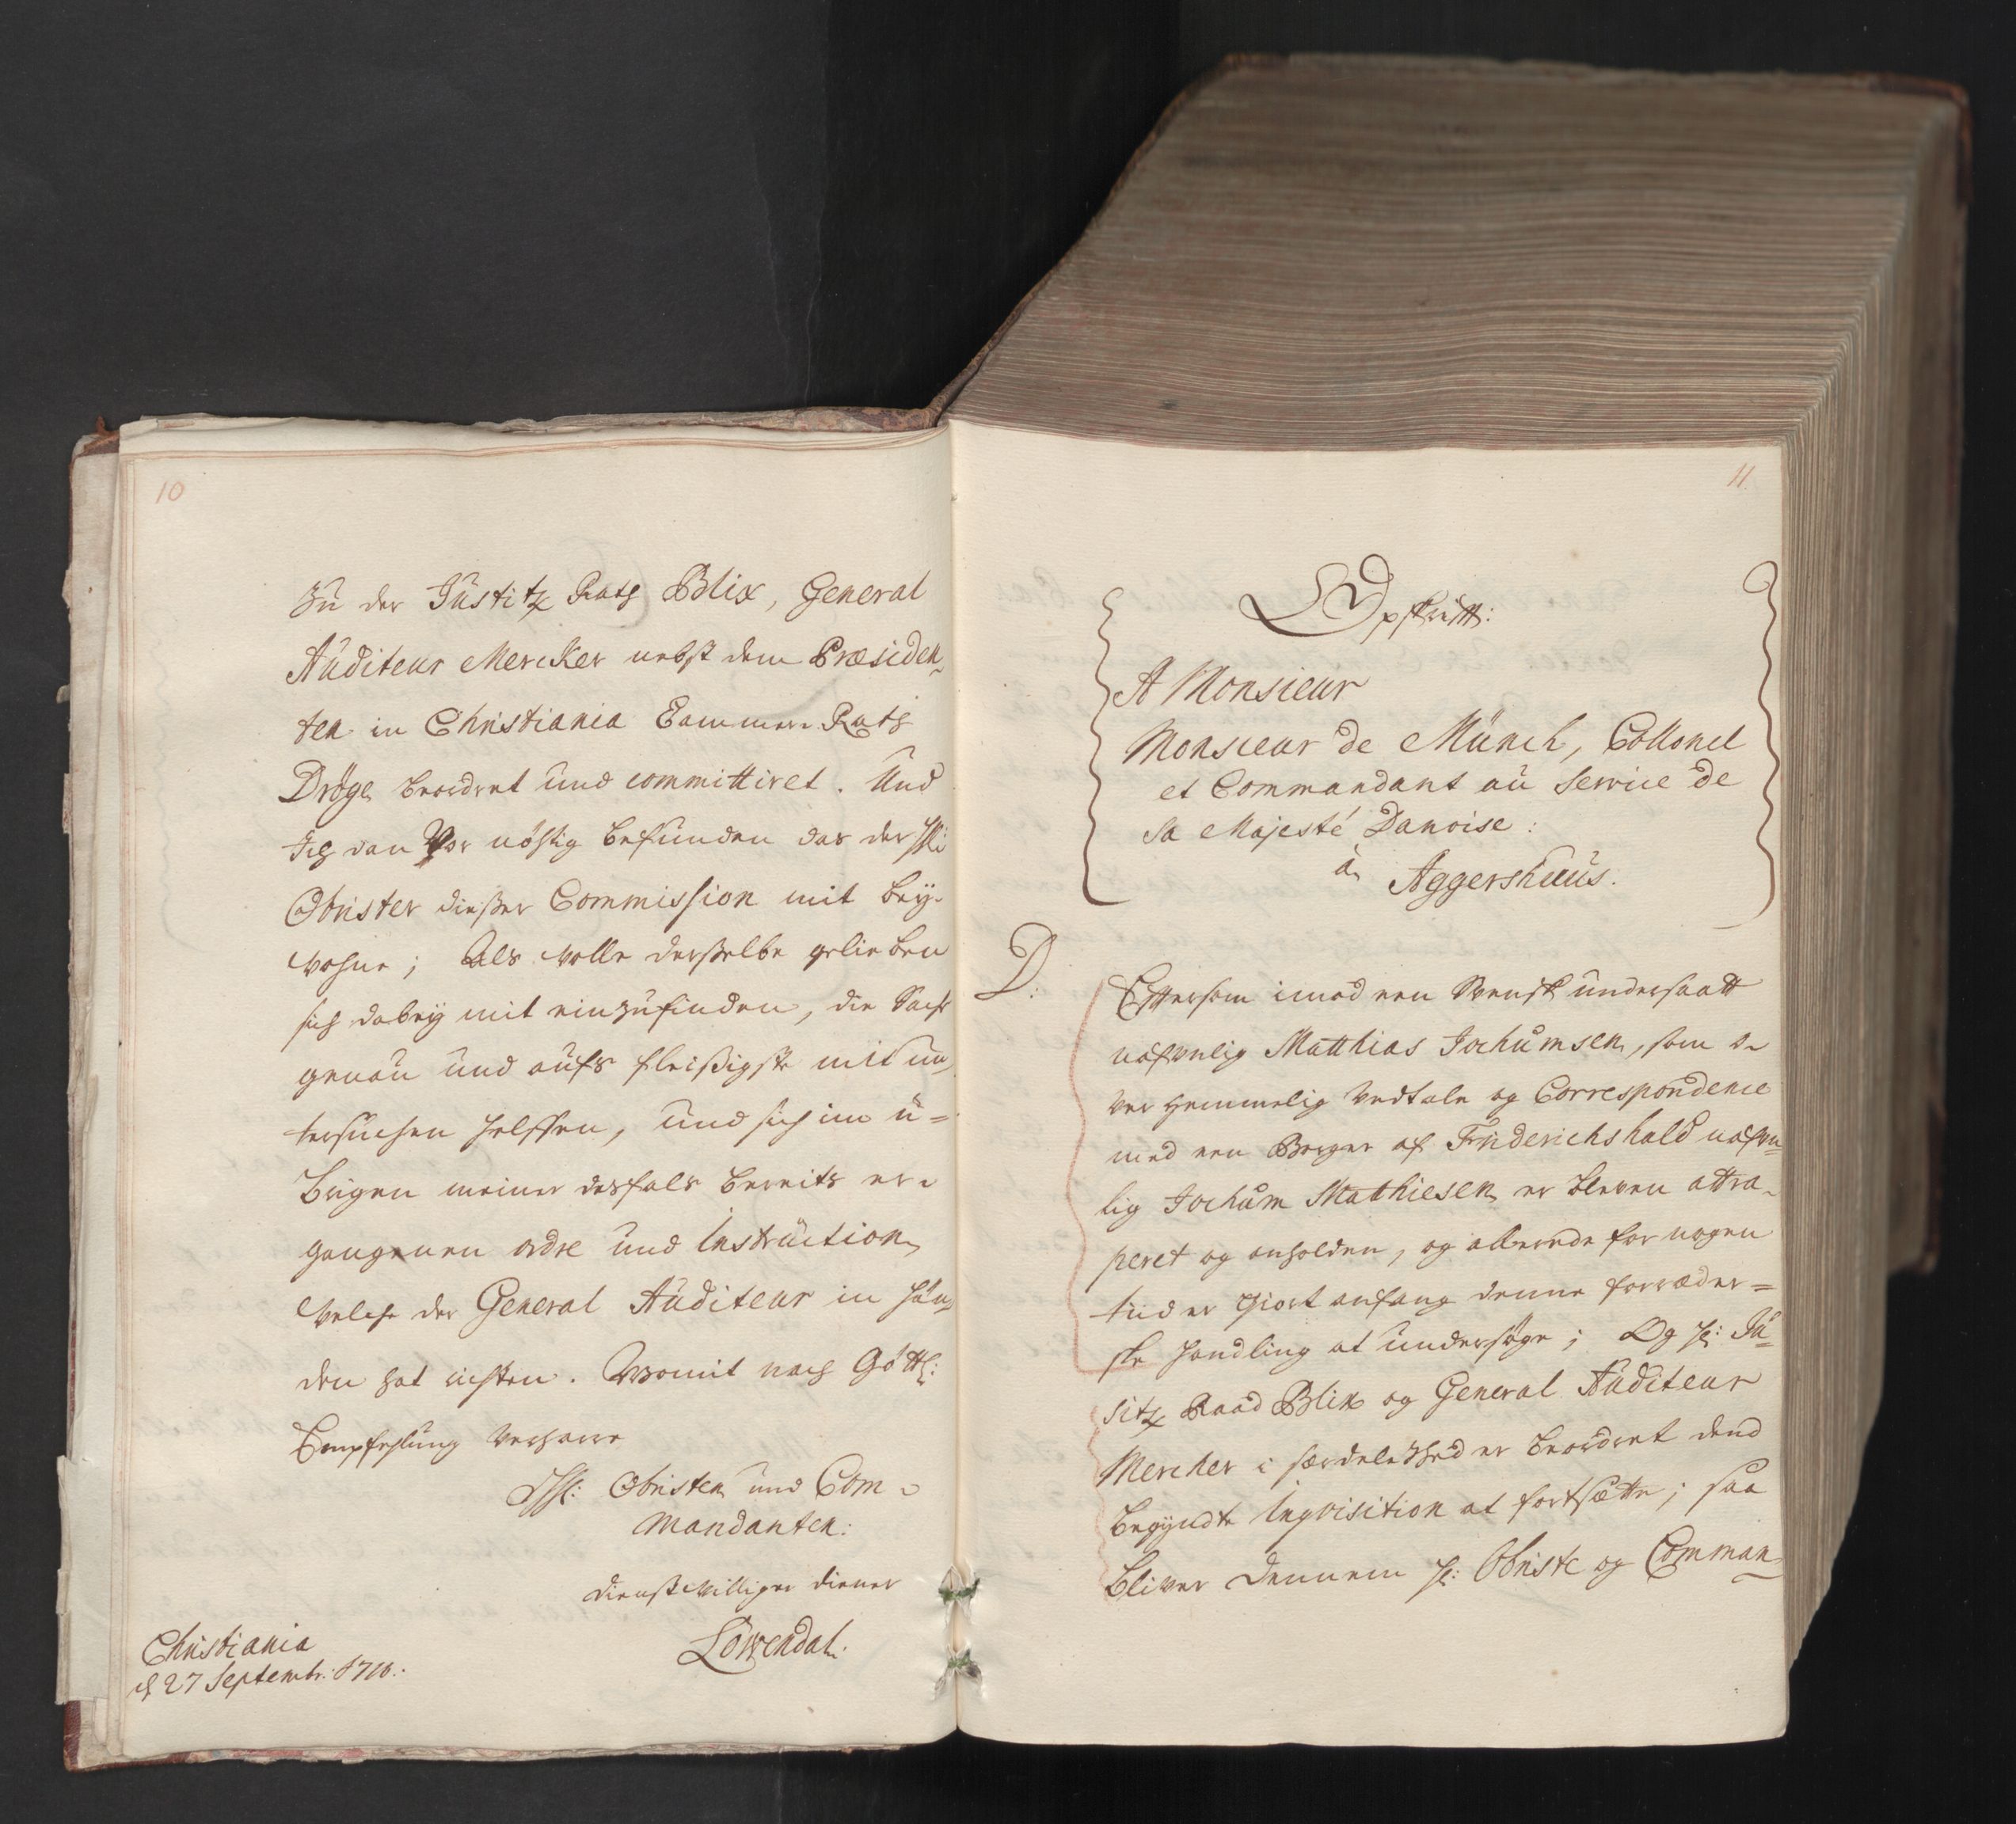 10
zu der Justitz Rath Blix, General
Auditeur Mercker nebst dem Præsiden¬
ten in Christiania Cammer Rath
Dröge beordret und committiret. Und
Ich dan vor nöhtig befunden das der Hl:
Obrister dießer Commission mit bey¬
wohne; Als wolle derselbe gelieben
sich dabey mit einzufinden, die Sache
genau und aufs fleißigste mit un¬
tersuchen helffen, und sich im ü=
brigen meiner desfals bereits er¬
gangenen ordre und Instruction
welche der General Auditeur in Hän¬
den hat richten. Womit nach Göttl:
Empfehlung verharre
Hhl: Obristen und Com¬
mandanten:
dienstwilliger diener
Löwendal.
Christiania
d 27 Septembr: 1710.
11.
Opskrifft:
A Monsieur
Monsieur de Münch, Collonel
et Commandant au Service de
sa Majesté Danoise:
à Aggershuus.
D:
Eftersom imod een Svensk undersaatt
nafnlig Matthias Jochumsen, som o¬
ver hemmelig Vedtale og Correspondence
med een Borger af Friderichshald nafn¬
lig Jochum Mathiesen er bleven attra¬
peret og anholden, og allerede for nogen
tiid er giort anfang denne forræder=
ske handling at undersøge; Og Hr: Ju¬
stitz Raad Blix og General Auditeur
Mercker i særdeleshed er beordret dend
begyndte Inqvisition at fortsætte; saa
bliver dennem Hr: Obriste og Comman¬